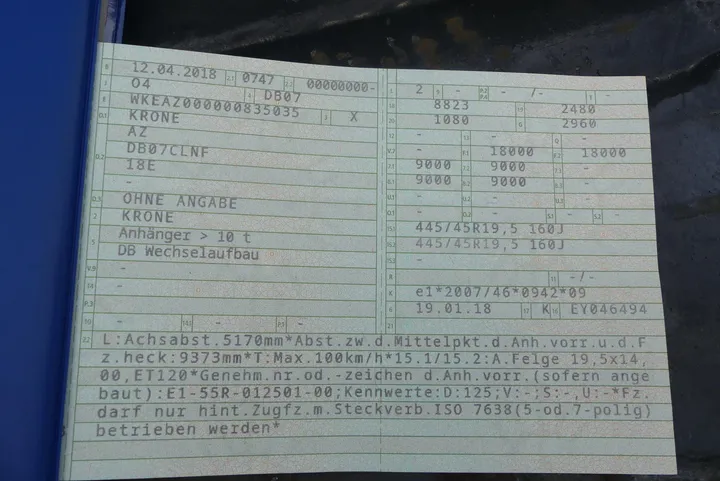 12.04.2018 0747 00000000-
04 DB07
WKEAZ000000835035 X
KRONE
AZ
DB07CLNF
18E
-
OHNE ANGABE
KRONE
Anhänger > 10 t
DB Wechselaufbau
-
-
-
- - -
2 - - /- -
8823 2480
1080 2960
- - -
- 18000 18000
9000 9000 -
9000 9000 -
- - -
- - - -
445/45R19,5 160J
445/45R19,5 160J
-
- -/-
e1*2007/46*0942*09
19.01.18 K EY046494
22 L:Achsabst.5170mm*Abst.zw.d.Mittelpkt.d.Anh.vorr.u.d.F
z.heck:9373mm*T:Max.100km/h*15.1/15.2:A.Felge 19,5x14,
00,ET120*Genehm.nr.od.-zeichen d.Anh.vorr.(sofern ange
baut):E1-55R-012501-00;Kennwerte:D:125;V:-;S:-,U:-*Fz.
darf nur hint.Zugfz.m.Steckverb.ISO 7638(5-od.7-polig)
betrieben werden*